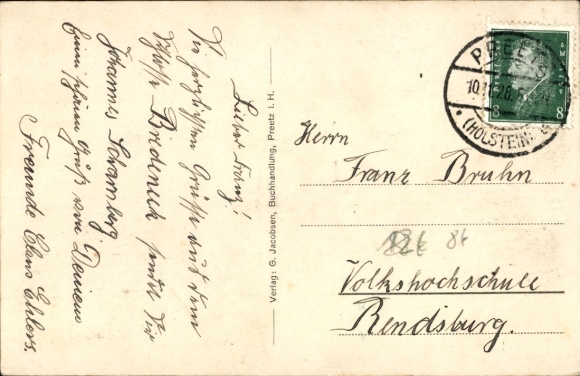 Lieber Franz!
Die herzlichsten Grüße aus dem
Schloße Bredeneck sendet Dir
Johannes Scharnberg.
Einen schönen Gruß von Deinem
Freunde Claus Ehlers.
Verlag: G. Jacobsen, Buchhandlung, Preetz i. H.
PREETZ
10.11.28.
(HOLSTEIN)
8 8
Herrn
Franz Bruhn
86
Volkshochschule
Rendsburg.